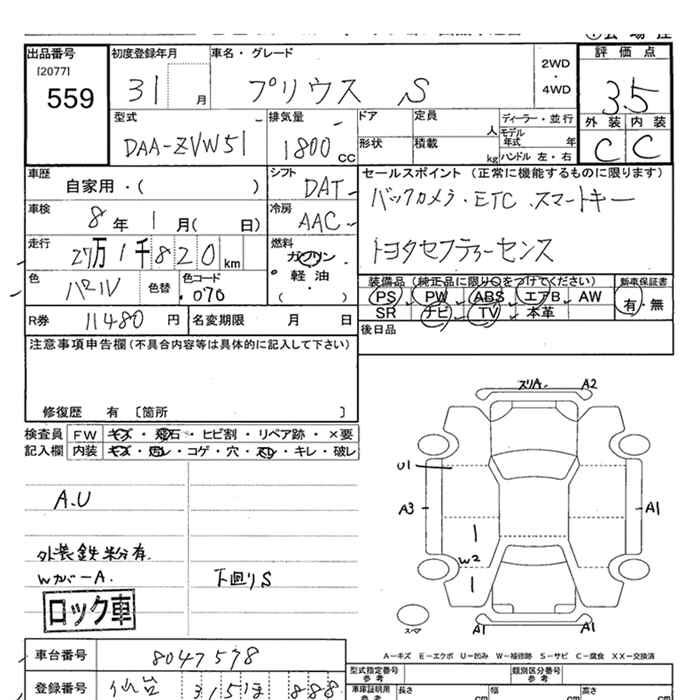 出品番号 初度登録年月 車名・グレード 2WD ・ 4WD 評価点
[2077]
559 31 月 プリウス S 3.5
外装 内装
C C
型式 排気量 ドア 定員 人 ディーラー・並行
DAA-ZVW51 1800 CC 形状 積載 kg モデル年式 年
ハンドル 左・右
車歴 自家用・( ) シフト DAT セールスポイント (正常に機能するものに限ります)
車検 8年 1月( 日) 冷房 AAC バックカメラ・ETC・スマートキー
走行 27万1千820km 燃料 ガソリン 軽・油 ( ) トヨタセフティーセンス
色 パール 色替 色コード 070 装備品 (純正品に限り○をつけてください) 新車保証書
PS PW ABS エアB AW 有・無
SR ナビ TV 本革
R券 11480 円 名変期限 月 日 後日品
注意事項申告欄(不具合内容等は具体的に記入して下さい)
修復歴 有 [箇所 ]
検査員 FW キズ・飛石・ヒビ割・リペア跡・×要
記入欄 内装 キズ・汚レ・コゲ・穴・スレ・キレ・破レ
A.U
外装鉄粉有
Wカバ-A. 下廻りS
ロック車
スリA A2
U1
A3 A1
W2
スマ A1 A1
A-キズ E-エクボ U-凹み W-補修跡 S-サビ C-腐食 XX-交換済
車台番号 8047578
登録番号 仙台 315 ほ 888
型式指定番号 参考 類別区分番号 参考
車庫証明用 参考 長さ cm 幅 cm 高さ cm